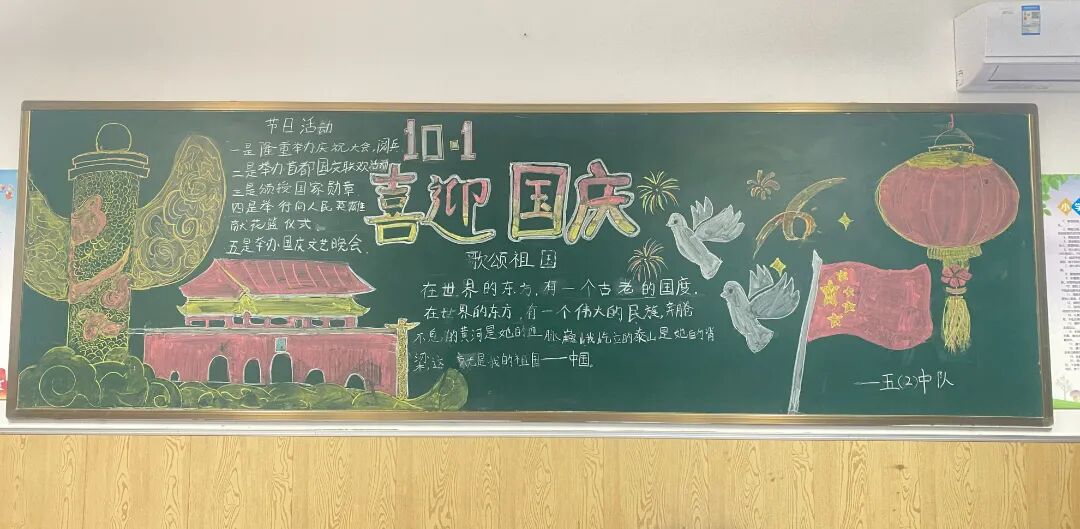 节日活动
一是隆重举办庆祝大会,阅兵
二是举办首都国庆联欢活动
三是颁授国家勋章
四是举行向人民英雄
献花篮仪式。
五是举办国庆文艺晚会
10·1
喜迎国庆
歌颂祖国
在世界的东方,有一个古老的国度,
在世界的东方,有一个伟大的民族,奔腾
不息的黄河是她的血脉,巍峨屹立的泰山是她的脊
梁,这就是我的祖国——中国。
——五(2)中队
小学